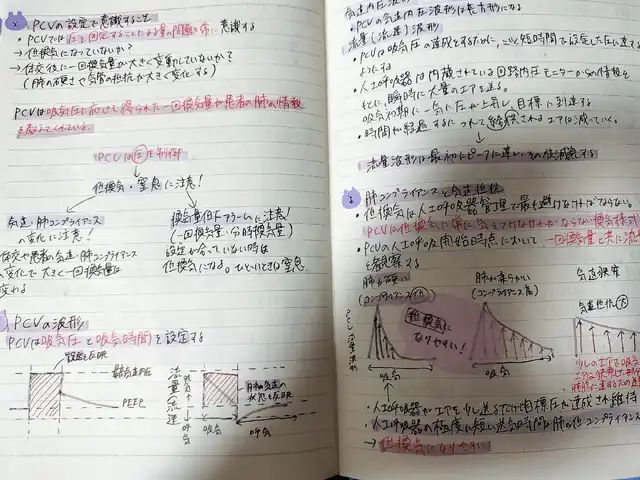 PCVの設定で意識すること
・PCVでは圧を固定することによる量の問題を常に意識する
→低換気になっていないか?
→体交後に一回換気量が大きく変動していないか?
(肺の硬さや気管の抵抗が大きく変化する)
PCVは吸気圧に応じて得られた一回換気量が患者の肺の情報
を教えてくれている。
PCVは圧を制御
低換気・窒息に注意!
気道・肺コンプライアンス
の変化に注意!
体交や患者の気道・肺コンプライアンス
の変化で大きく一回換気量は
変わる
換気量低下アラームに注意!
(一回換気量・分時換気量)
設定が合っていない時は
低換気になる。ひどいときは窒息
PCVの波形
PCVは吸気圧と吸気時間を設定する
設定を反映
最高気道内圧
PEEP
流量(流速)
吸気
呼気
肺の気道の
状況を反映
吸気
呼気
気道内圧波形
・PCVの気道内圧波形は長方形になる
流量(流速)波形
・PCVは吸気圧の達成とするために、ごく短時間で設定した圧に達する
ようにする
・人工呼吸器は内蔵されている回路内圧モニターからの情報を
元に、瞬時に大量のエアを送る。
吸気初期に一気に圧が上昇し、目標に到達する
・時間が経過するにつれて供給されるエアは減っていく。
流量波形は最初にピークに達し、その後減衰する
肺コンプライアンスと気道抵抗
・低換気は人工呼吸器管理で最も避けなければならない。
PCVは低換気に常に気をつけなければならない換気様式
・PCVの人工呼吸開始時点において一回換気量と共に流
を観察する
肺が硬い
(コンプライアンス低)
肺が柔らかい
(コンプライアンス高)
気道狭窄
気道抵抗大
PCV流量波形
低換気に
なりやすい!
吸気
吸気
少しのエアで吸気
・人工呼吸器がエアを少し送るだけで目標圧が達成され維持
・人工呼吸器の極度に短い送気時間=肺の低コンプライアンス
→低換気になりやすい